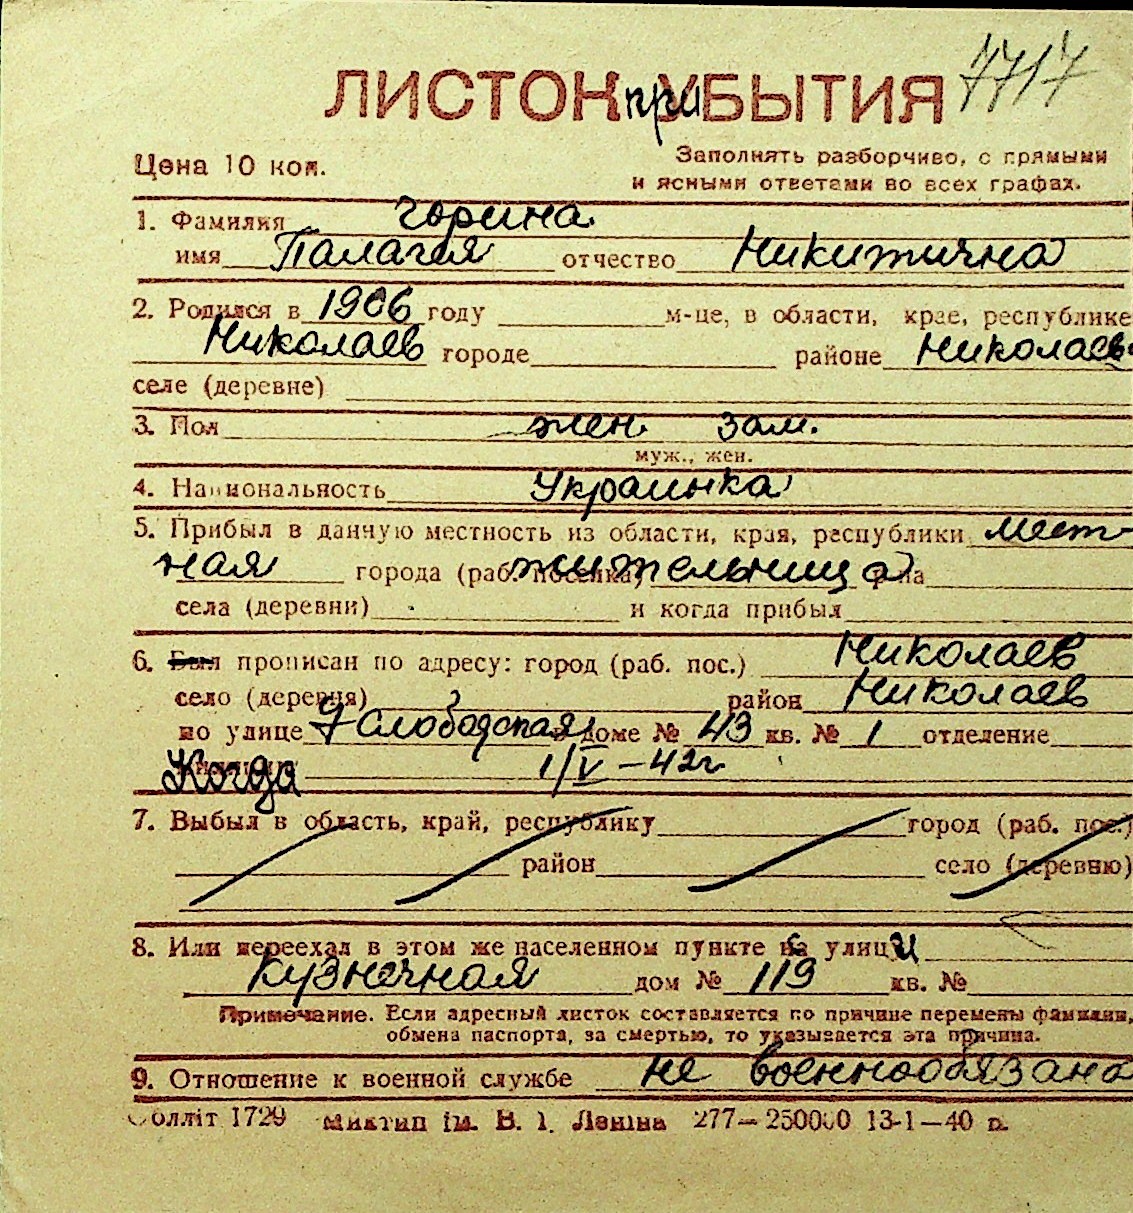 ЛИСТОК прИБЫТИЯ 7717
Цена 10 коп.
Заполнять разборчиво, с прямыми
и ясными ответами во всех графах.
1. Фамилия Горина
имя Палагея отчество Никитична
2. Родился в 1906 году м-це, в области, крае, республике
Николаев городе районе Николаев
селе (деревне)
3. Пол жен. зам.
муж., жен.
4. Национальность Украинка
5. Прибыл в данную местность из области, края, республики мест-
ная города (раб. поселка) жительница р-на
села (деревни) и когда прибыл
6. Был прописан по адресу: город (раб. пос.) Николаев
село (деревня) район Николаев
по улице 7 Слободская в доме № 43 кв. № 1 отделение
Когда 1/V – 42 г
7. Выбыл в область, край, республику город (раб. пос.)
район село (деревню)
8. Или переехал в этом же населенном пункте с улицы
Кузнечная дом № 119 кв. №
Примечание. Если адресный листок составляется по причине перемены фамилии,
обмена паспорта, за смертью, то указывается эта причина.
9. Отношение к военной службе не военнообязана
Облліт 1729 Миктип ім. В. І. Леніна 277—250000 13-1—40 р.